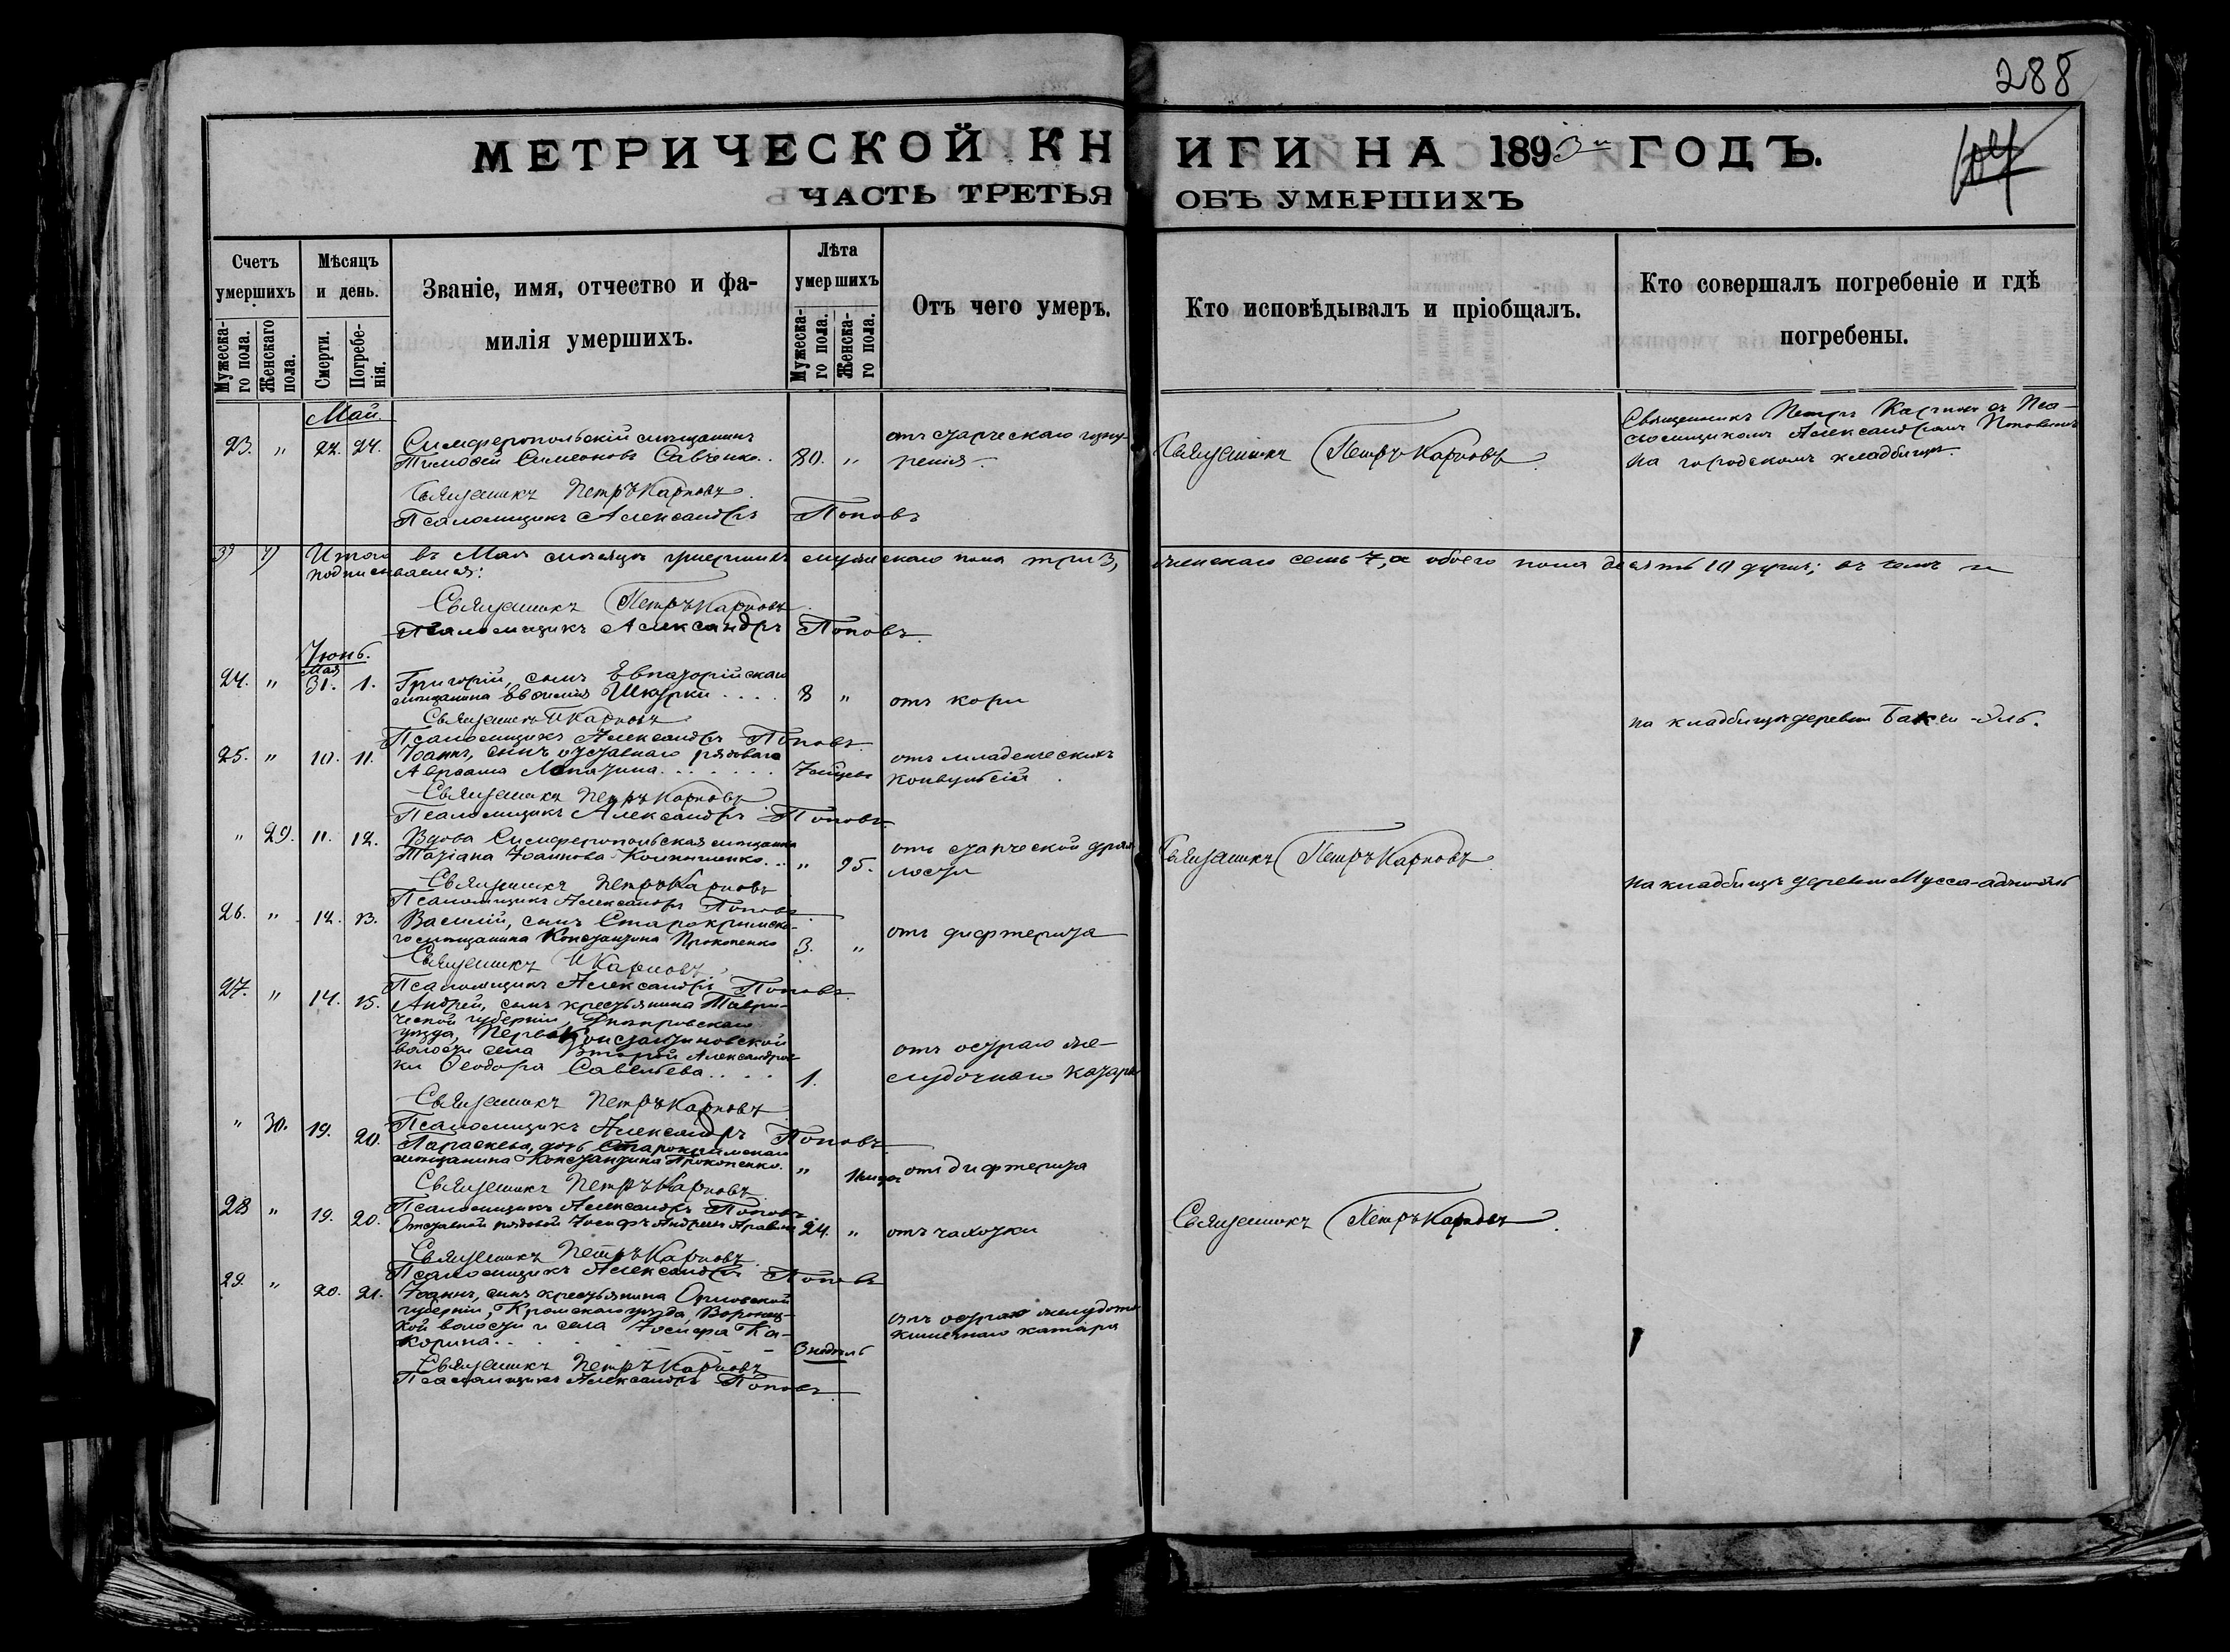 288
МЕТРИЧЕСКОЙ КНИГИ НА 1893й ГОДЪ.
ЧАСТЬ ТРЕТЬЯ ОБЪ УМЕРШИХЪ
Счетъ умершихъ
Мужеска-го пола.
Женскаго пола.
Мѣсяцъ и день.
Смерти.
Погребе-нія.
Званіе, имя, отчество и фа-
милія умершихъ.
Лѣта умершихъ
Мужеска-го пола.
Женска-го пола.
Отъ чего умеръ.
Кто исповѣдывалъ и пріобщалъ.
Кто совершалъ погребеніе и гдѣ
погребены.
Май.
23. " 22. 24. Симферопольскій мѣщанинъ
Тимофей Симеоновъ Савченко. 80. "
отъ старческаго
Священникъ Петръ Карповъ
Священникъ Петръ Карповъ съ Пса-
ломщикомъ Александромъ Поповымъ
на городскомъ кладбищѣ.
Священникъ Петръ Карповъ
Псаломщикъ Александръ Поповъ
3) 7) Итого въ Маѣ мѣсяцѣ умершихъ мужескаго пола три 3, женскаго семь 7, а обоего пола десять 10 душъ; въ чемъ и
подписываемся:
Священникъ Петръ Карповъ
Псаломщикъ Александръ Поповъ
Іюнь.
Мая
24. " 31. 1. Григорій, сынъ Евпаторійскаго
мѣщанина Евфимія Шкурки . . . . 8 " отъ кори
на кладбищѣ деревни Бакчи-Эль.
Священникъ П Карповъ
Псаломщикъ Александръ Поповъ
25. " 10. 11. Іоаннъ, сынъ отставнаго рядоваго
Авраама Лопатина. . . . . . . 7 мѣсяц
отъ младенческихъ
конвульсій
Священникъ Петръ Карповъ
Псаломщикъ Александръ Поповъ
" 29. 11. 12. Вдова Симферопольская мѣщанка
Татіана Іоаннова . . . " 95.
отъ старческой дрях
лости
Священникъ Петръ Карповъ
на кладбищѣ деревни Мусса-аджи-эль
Священникъ Петръ Карповъ
Псаломщикъ Александръ Поповъ
26. " 12. 13. Василій, сынъ Старокрымска-
го мѣщанина Константина Прокопенко 3. "
отъ дифтерита
Священникъ П Карповъ
Псаломщикъ Александръ Поповъ
27. " 14. 15. Андрей, сынъ крестьянина Таври-
ческой губерніи, Днѣпровскаго
уѣзда, Перво Константиновской
волости села Второй Александров
ки Ѳеодора Савельева . . . . 1.
отъ остраго же-
лудочнаго катара
Священникъ Петръ Карповъ
Псаломщикъ Александръ Поповъ
" 30. 19. 20. Параскева, дочь Старокрымскаго
мѣщанина Константина Прокопенко. "
отъ дифтерита
Священникъ Петръ Карповъ
Псаломщикъ Александръ Поповъ
28 " 19. 20. Отставной рядовой Іосифъ Андреевъ 24. " отъ чахотки
Священникъ Петръ Карповъ
Священникъ Петръ Карповъ
Псаломщикъ Александръ Поповъ
29. " 20. 21. Іоаннъ, сынъ крестьянина Орловской
губерніи, Кромскаго уѣзда, Воронец-
кой волости и села Іосифа Ка-
корина . . . 3 недѣль
отъ остраго желудочно
кишечнаго катара
Священникъ Петръ Карповъ
Псаломщикъ Александръ Поповъ